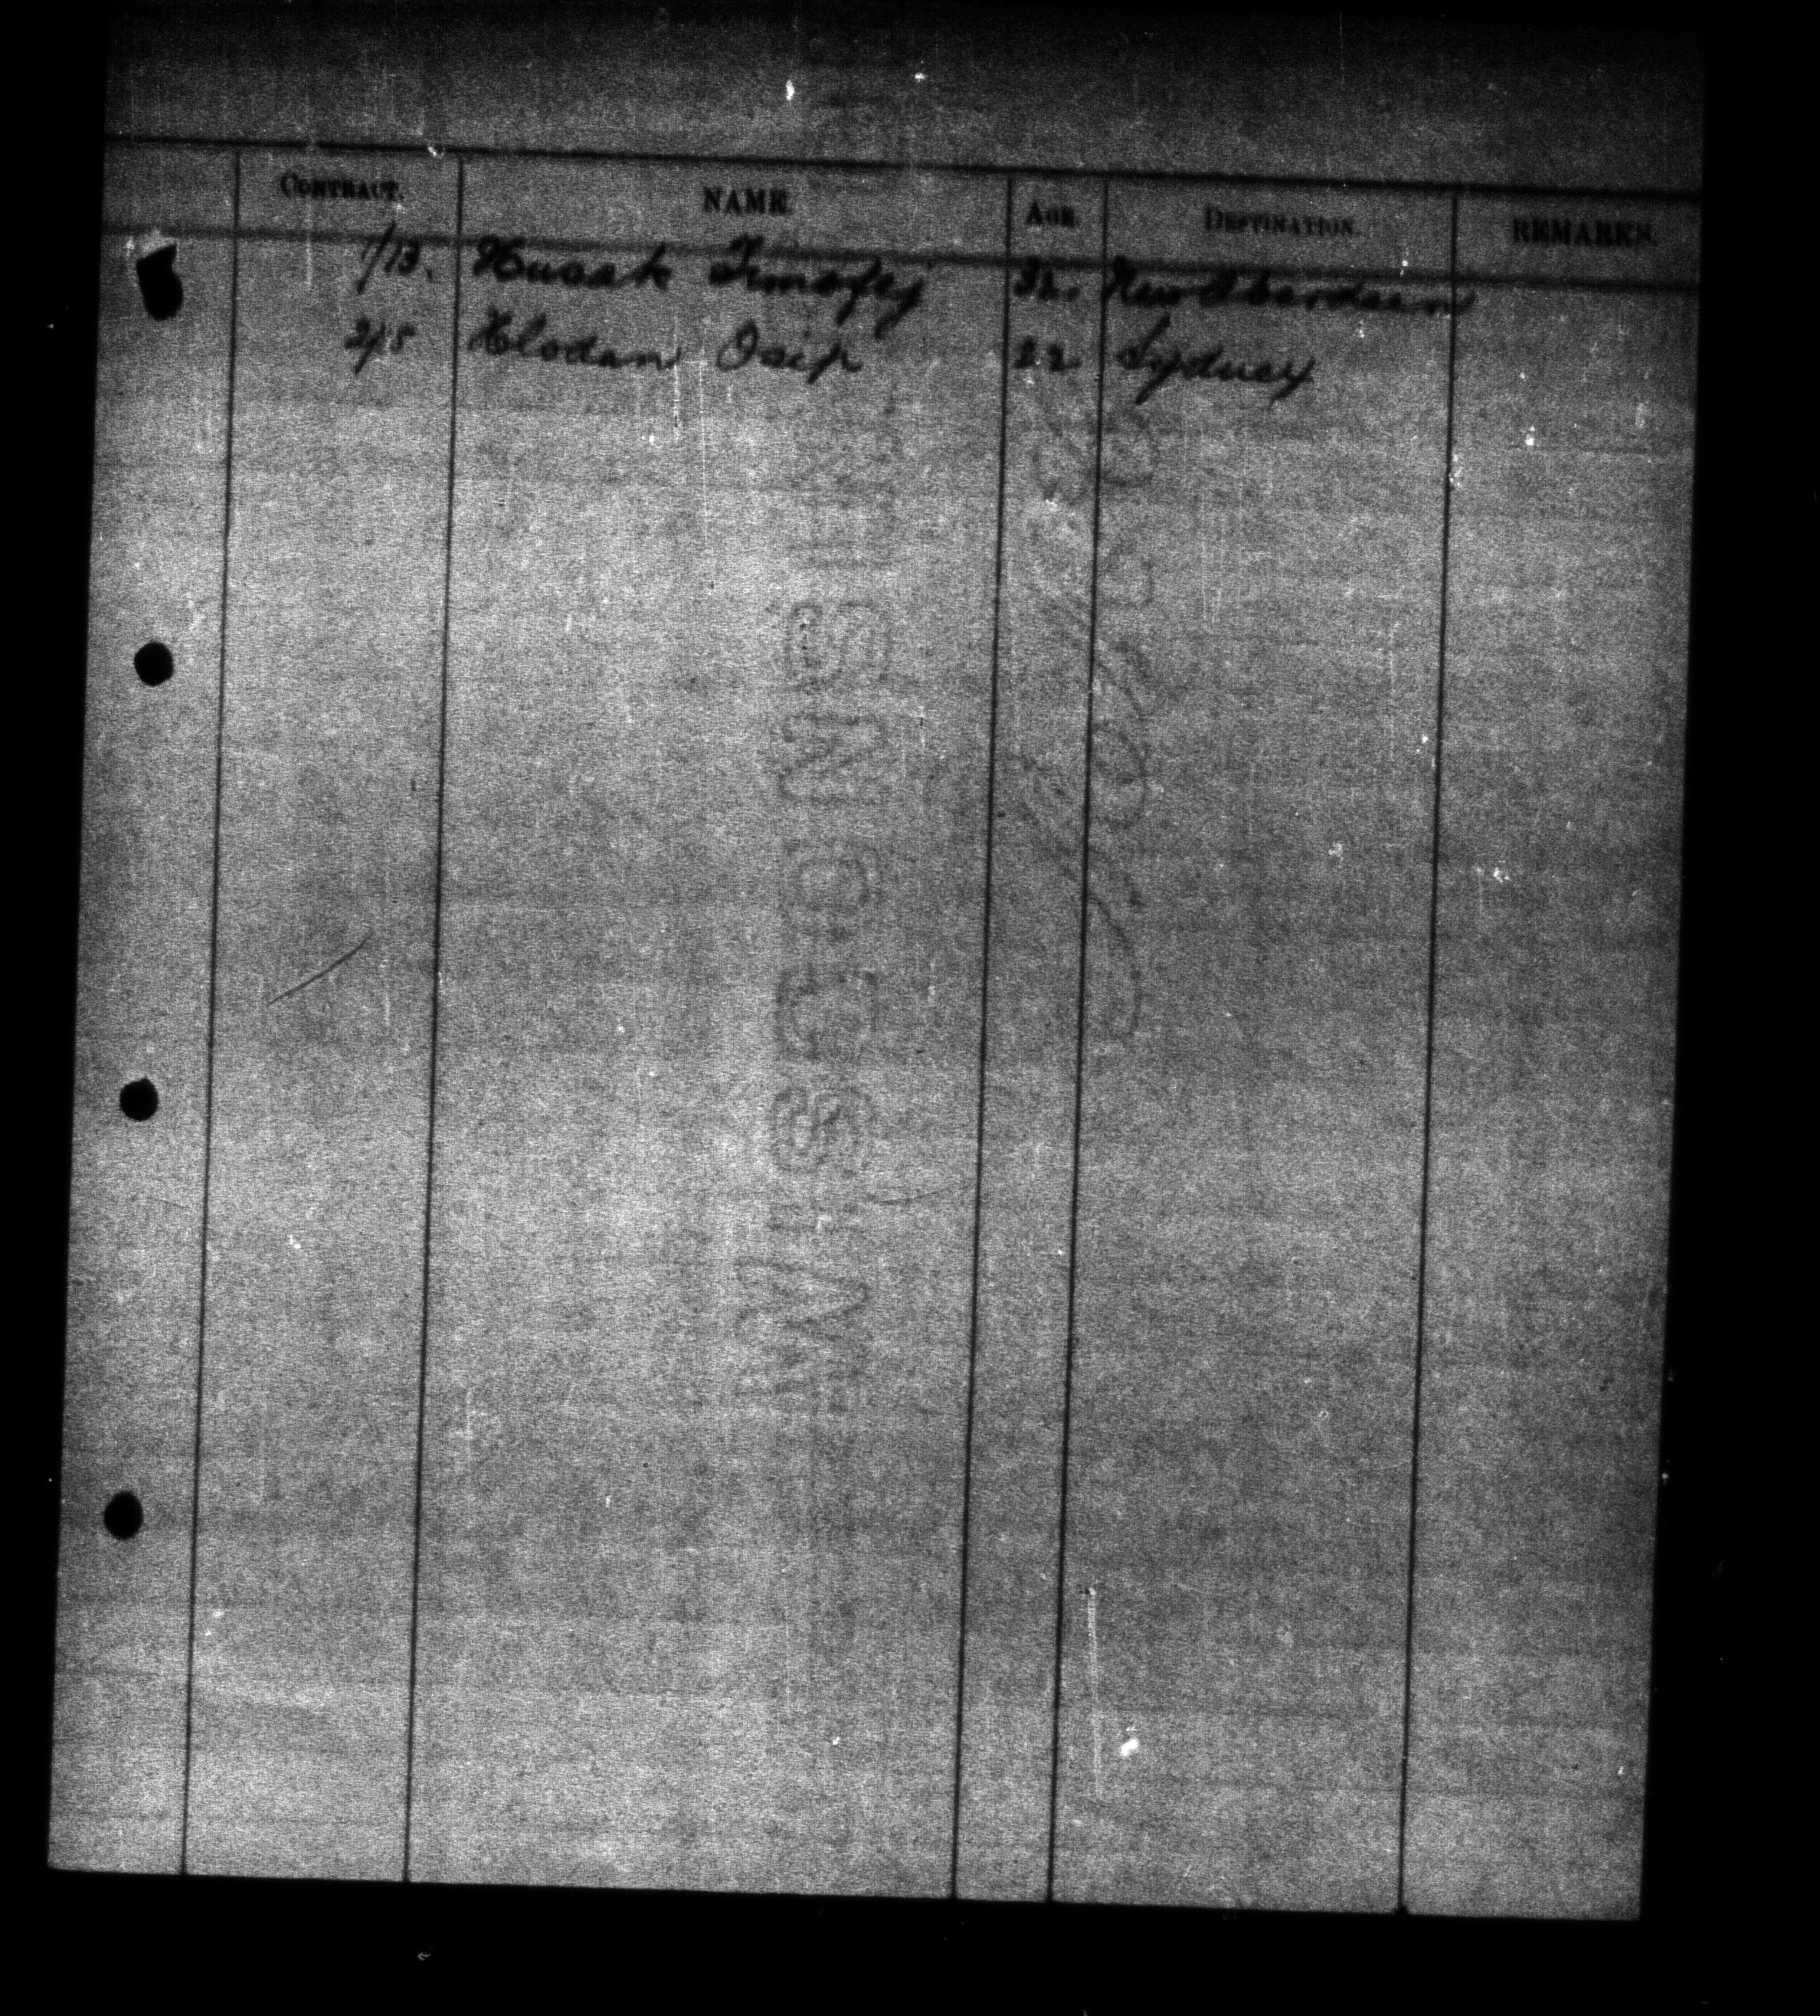 CONTRACT. NAME. AGE. DESTINATION. REMARKS.
1/13. Husak Timofej 32. New Aberdeen
2/5 Hlodan Osip 22 Sydney